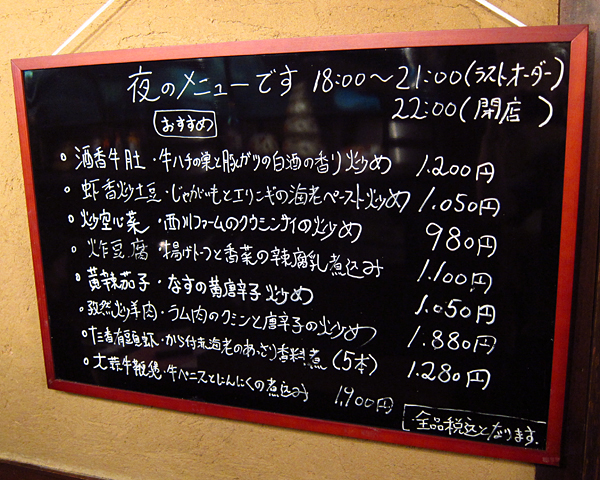 夜のメニューです 18:00〜21:00(ラストオーダー)
22:00(閉店)
おすすめ
○ 酒香牛肚・牛ハチの巣と豚ガツの白酒の香り炒め 1.200円
○ 虾香炒土豆・じゃがいもとエリンギの海老ペースト炒め 1.050円
○ 炒空心菜・西川ファームのクウシンサイの炒め 980円
○ 炸豆腐 揚げトーフと香菜の辣腐乳煮込み 1.100円
○ 黄辣茄子・なすの黄唐辛子炒め 1.050円
○ 孜然炒羊肉・ラム肉のクミンと唐辛子の炒め 1.880円
○ 煮有頭虾・から付き海老のあっさり香料煮(5本) 1.280円
○ 大蒜牛鞭・牛ペニスとにんにくの煮込み 1,900円
全品税込となります.